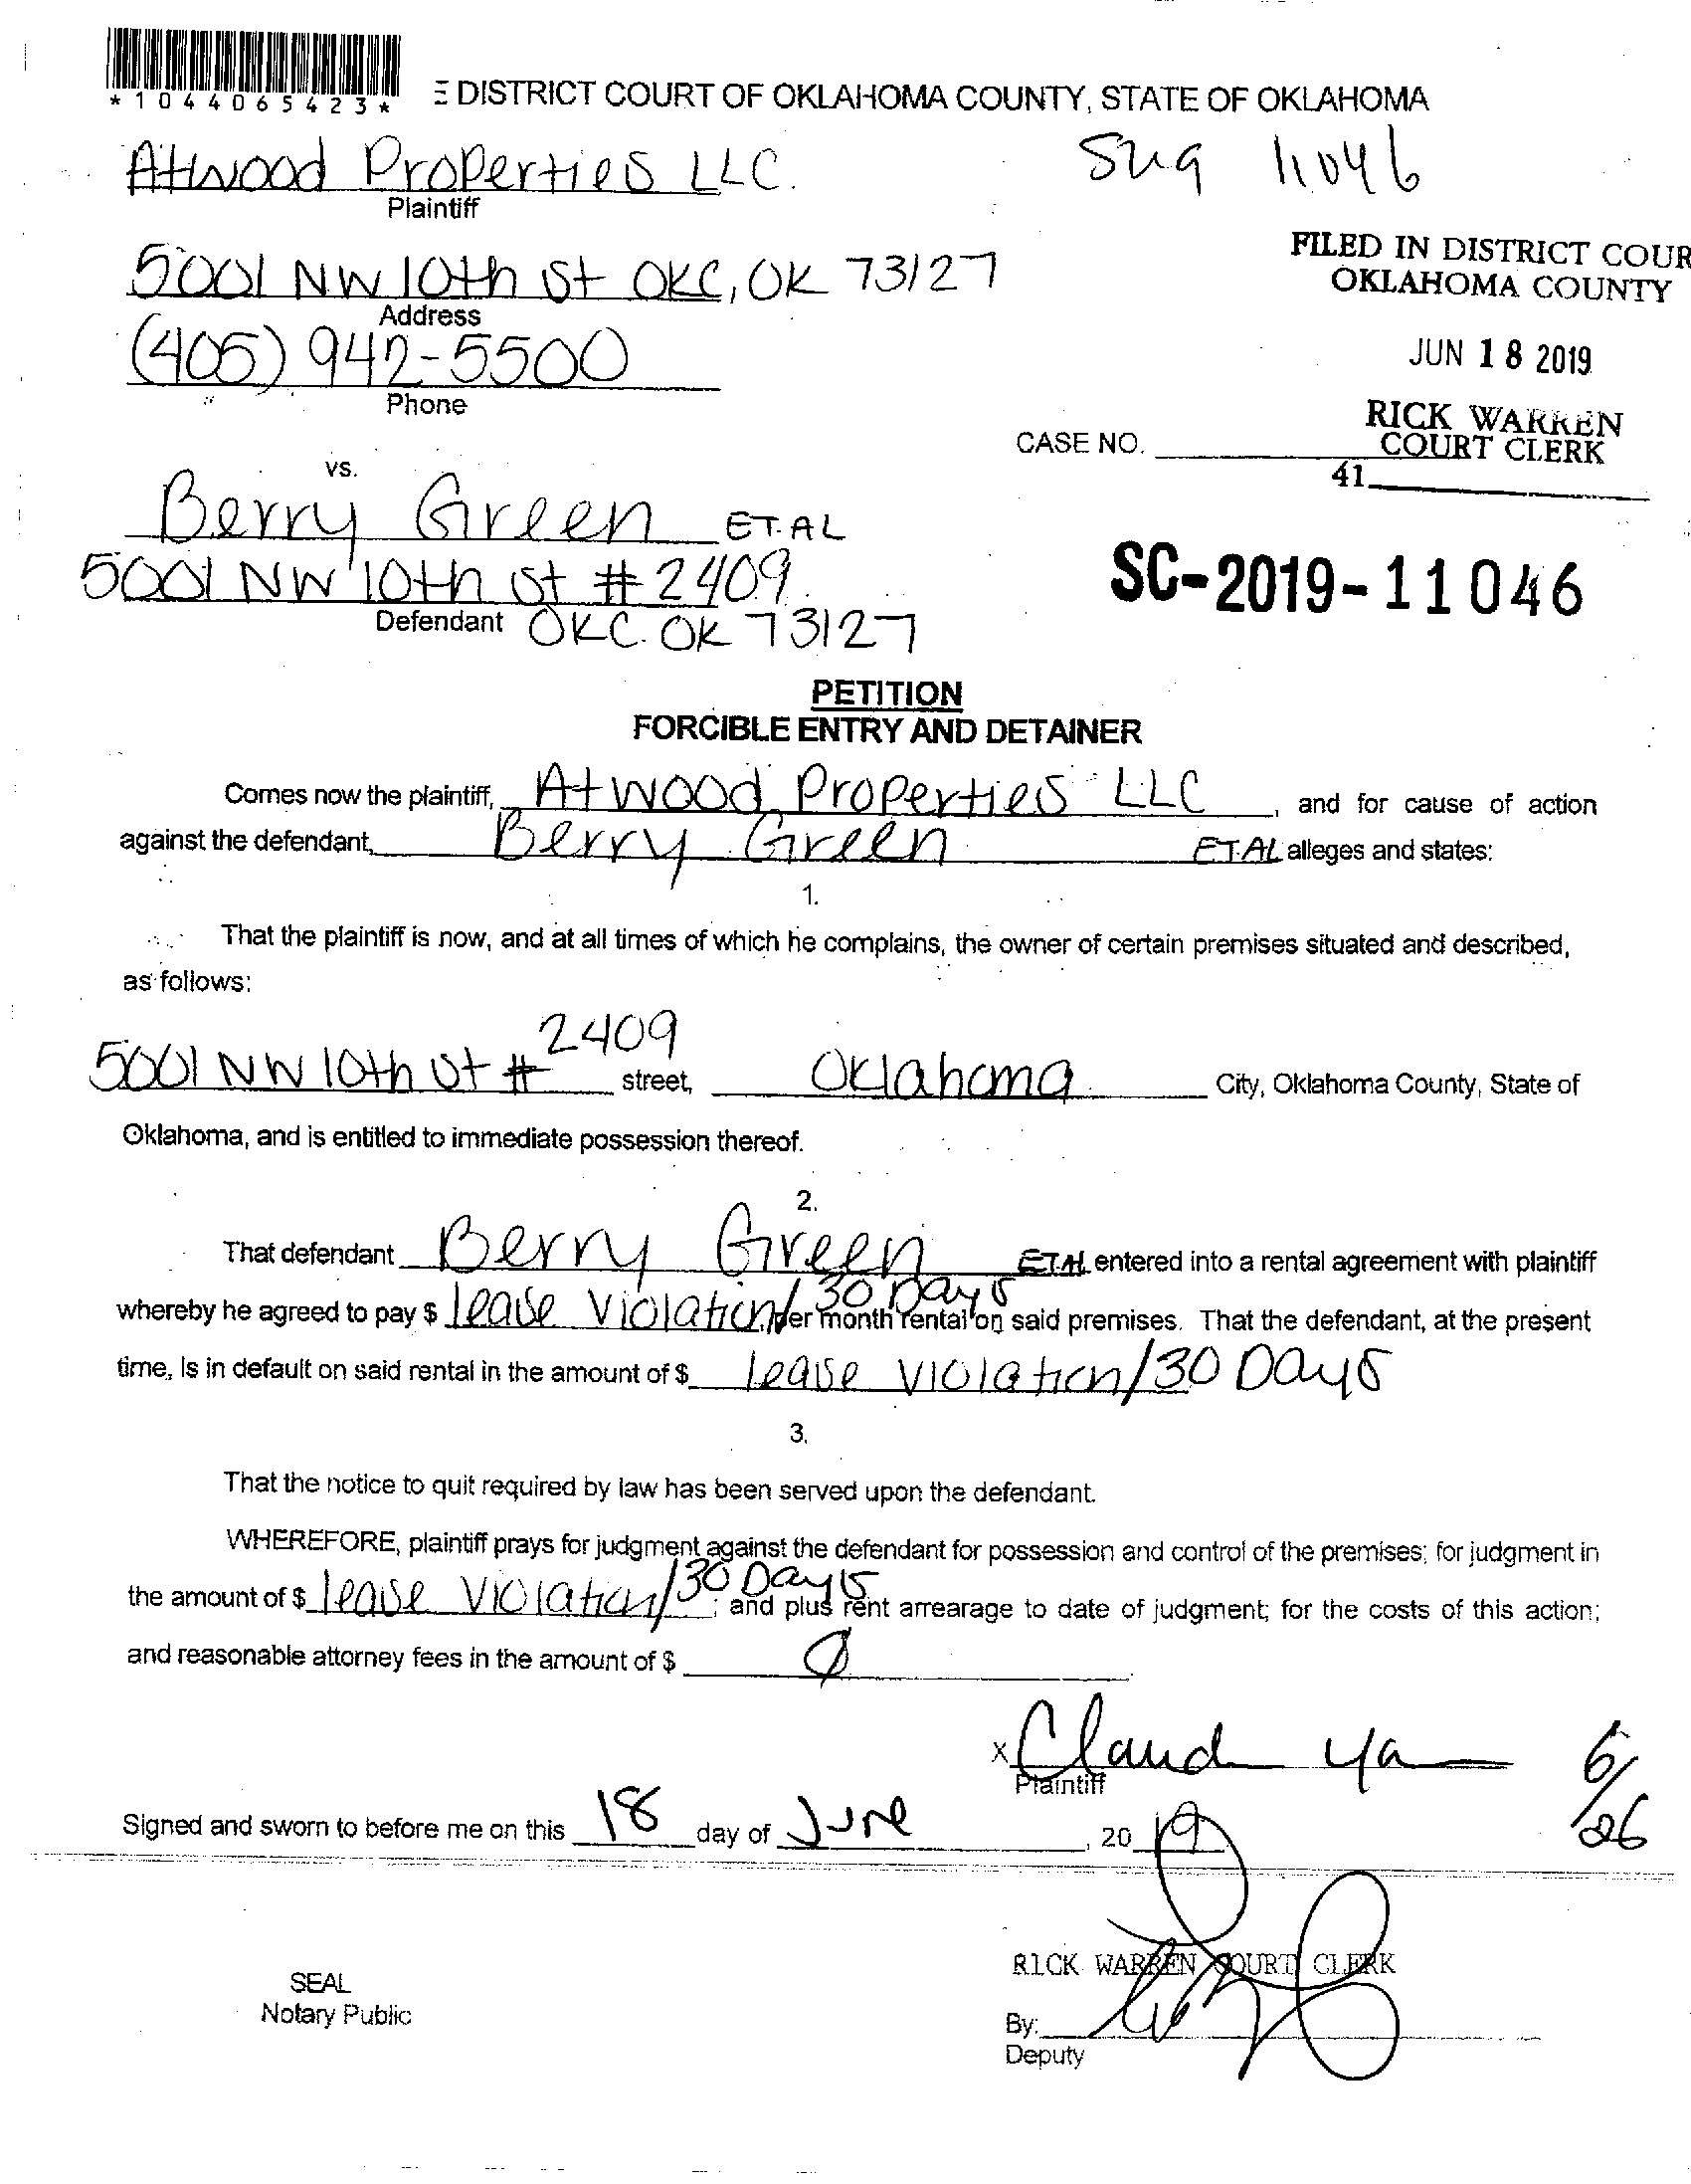 *1044065423*
E DISTRICT COURT OF OKLAHOMA COUNTY, STATE OF OKLAHOMA
Atwood Properties LLC.
11046
Plaintiff
5001 NW 10th St OKC, OK 73127
Address
FILED IN DISTRICT COUR
OKLAHOMA COUNTY
(405) 942-5500
Phone
JUN 18 2019
RICK WARREN
COURT CLERK
CASE NO.
41
vs.
Berry Green ET.AL
5001 NW 10th St # 2409
Defendant OKC. OK 73127
SC-2019-11046
PETITION
FORCIBLE ENTRY AND DETAINER
Comes now the plaintiff, Atwood Properties LLC, and for cause of action
against the defendant, Berry Green ET.AL alleges and states:
1.
That the plaintiff is now, and at all times of which he complains, the owner of certain premises situated and described,
as follows:
5001 NW 10th St # 2409 street, Oklahoma City, Oklahoma County, State of
Oklahoma, and is entitled to immediate possession thereof.
2.
That defendant Berry Green ET.AL entered into a rental agreement with plaintiff
whereby he agreed to pay $ lease violation/30 Days per month rental on said premises. That the defendant, at the present
time, Is in default on said rental in the amount of $ lease violation/30 Days
3.
That the notice to quit required by law has been served upon the defendant.
WHEREFORE, plaintiff prays for judgment against the defendant for possession and control of the premises; for judgment in
the amount of $ lease violation/30 Days; and plus rent arrearage to date of judgment; for the costs of this action;
and reasonable attorney fees in the amount of $ Ø
x
Plaintiff
6/26
Signed and sworn to before me on this 18 day of June, 2019
RICK WARREN COURT CLERK
SEAL
Notary Public
By:
Deputy